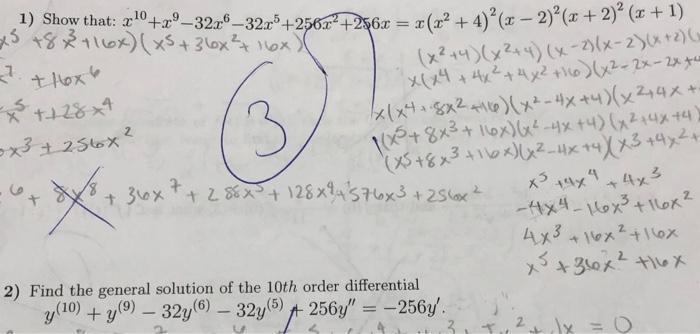 1) Show that: x¹⁰+x⁹−32x⁶−32x⁵+256x²+256x = x(x²+4)²(x−2)²(x+2)²(x+1)
x⁵ +8x³+16x)(x⁵+36x²+16x)
(x²+4)(x²+4)(x-2)(x-2)(x+2)(
+16x⁶
x(x⁴+4x²+4x²+16)(x²-2x-2x+4
x⁵ +128x⁴
x(x⁴+8x²+16)(x²-4x+4)(x²+4x+
3
(x⁵+8x³+16x)(x²-4x+4)(x²+4x+4)
x³ + 256x²
(x⁵+8x³+16x)(x²-4x+4)(x³+4x²+
+ 8x⁸ + 36x⁷ + 288x⁵ + 128x⁴ + 576x³ + 256x²
x⁵ +4x⁴ + 4x³
-4x⁴ -16x³ +16x²
4x³ +16x² +16x
x⁵ + 36x² +16x
2) Find the general solution of the 10th order differential
y⁽¹⁰⁾ + y⁽⁹⁾ − 32y⁽⁶⁾ − 32y⁽⁵⁾ + 256y″ = −256y′.
= 0